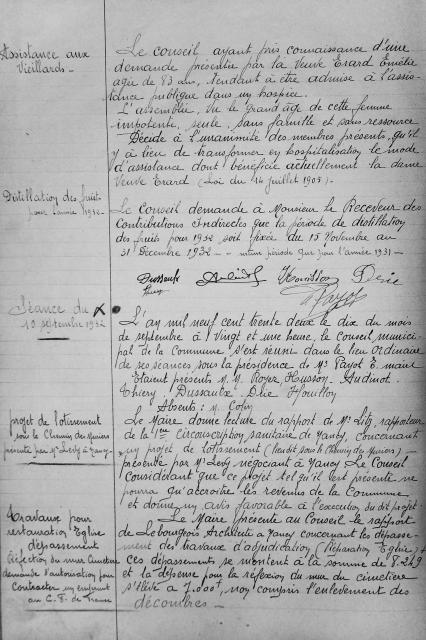 Assistance aux
Vieillards_
Le conseil ayant pris connaissance d'une
demande présentée par la Veuve Erard Emélie
agée de 83 ans, tendant à être admise à l'assis-
tance publique dans un hospice.
L'assemblée, Vu le grand âge de cette femme
impotente, seule, sans famille et sans ressource
Décide à l'unanimité des membres présents, qu'il
y a lieu de transformer en hospitalisation le mode
d'assistance dont bénéficie actuellement la dame
Veuve Erard (Loi du 14 juillet 1905)_
Distillation des fruits
pour l'année 1932_
Le Conseil demande à Monsieur le Receveur des
Contributions Indirectes que la période de distillation
des fruits pour 1932 soit fixée du 15 Novembre au
31 Décembre 1932_ _ même période que pour l'année 1931_
Dussaulx Audinot Houillon Dėie
Thiery Payot
Séance du
10 septembre 1932
L'an mil neuf cent trente deux le dix du mois
de septembre à vingt et une heure, le conseil munici-
pal de la Commune s'est réuni dans le lieu ordinaire
de ses séances, sous la présidence de Mr Payot E. maire
Etaient présents M. M. Royer, Husson, Audinot.
Thiery Dussaulx Houillon
Absents: M. Colin
projet de lotissement
sous le Chemin des Muniers
présenté par Mr Levy à Nancy_
Le Maire donne lecture du rapport de Mr rapporteur
de la 1ère circonscription sanitaire de Nancy, concernant
un projet de lotissement (lieudit sous le Chemin des Muniers)_
présentée par Mr Levy négociant à Nancy Le Conseil
considérant que ce projet tel qu'il est présenté ne
pourra qu'accroître les revenus de la Commune
et donne un avis favorable à l'exécution du dit projet.
Travaux pour
restauration Eglise
dépassement
Réfection du mur Cimetière
demande d'autorisation pour
Contracter un emprunt
au C. F. de France
Le Maire présente au Conseil le rapport
de Lebourgeois Architecte à Nancy concernant les dépasse-
ment des travaux d'adjudication (Réparation Eglise)
ces dépassements se montent à la somme de 8.249
et la dépense pour la réfexion du mur du cimetière
s'élève à 7.000f, non compris l'enlèvement des
décombres_